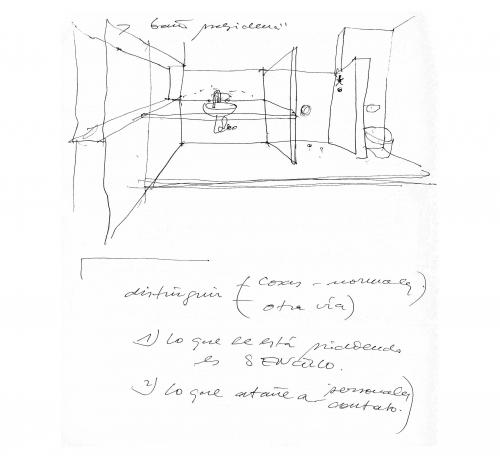 baño presidencia"
distinguir ( cosas - normales.
( otra vía )
1) Lo que se está pidiendo
es SENCILLO.
2) Lo que atañe a personales
contato. )